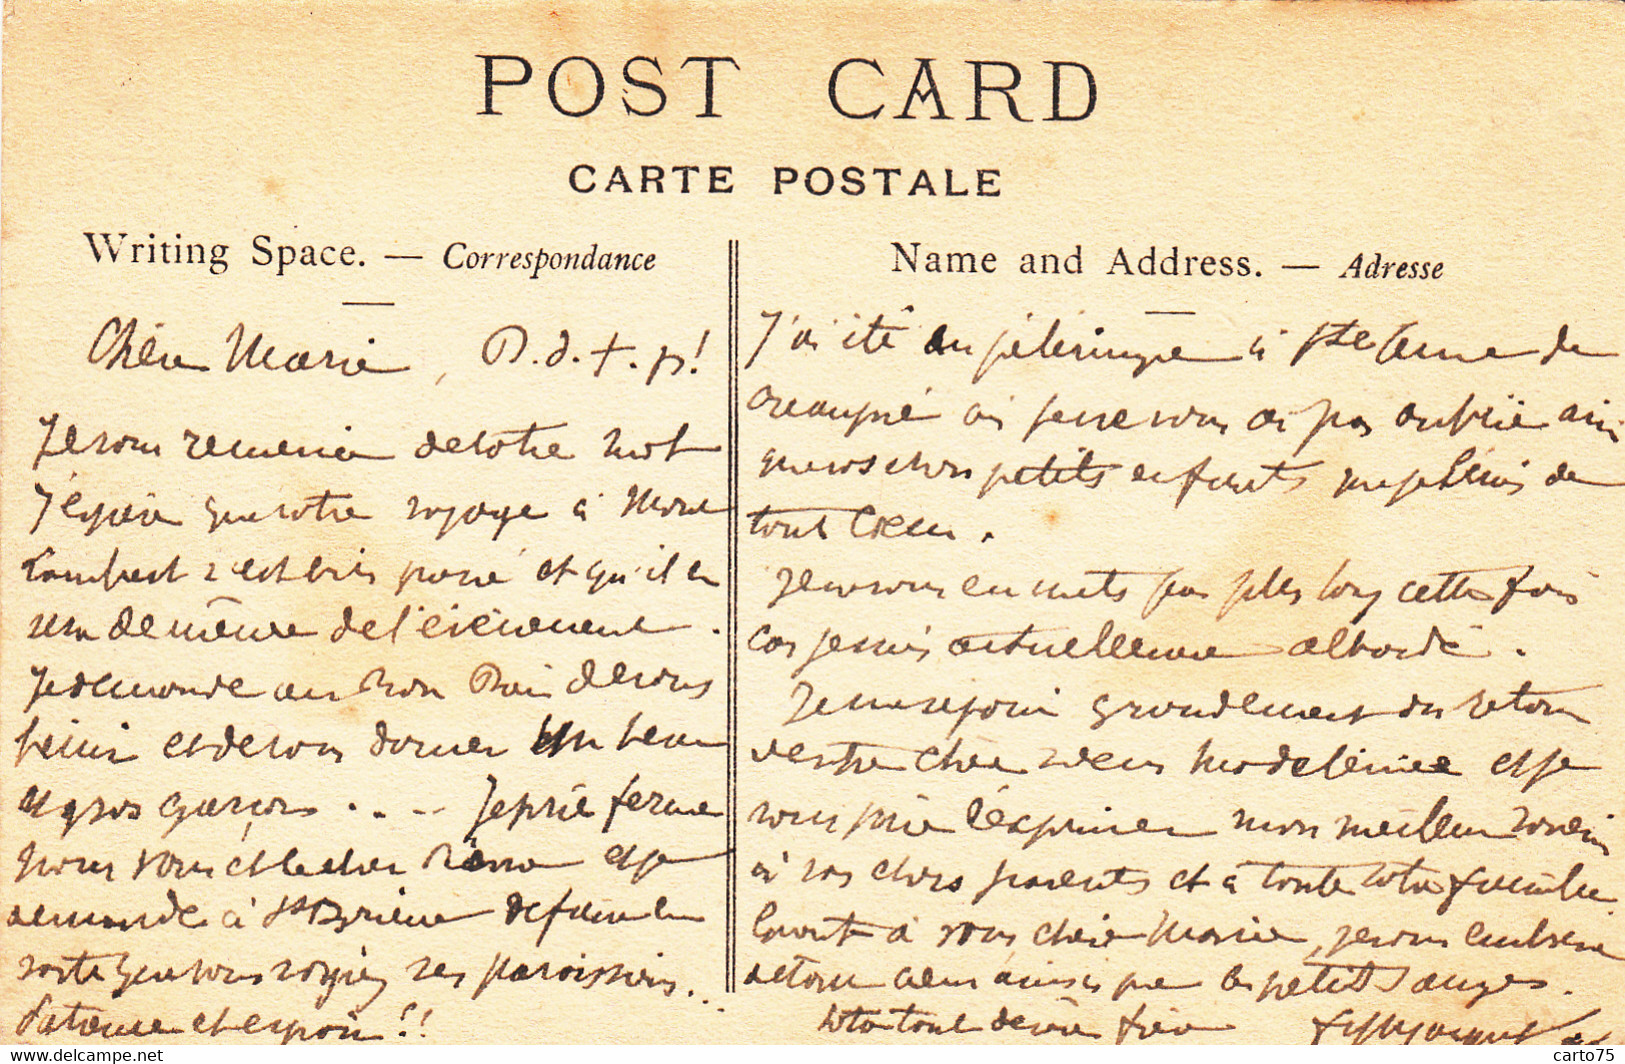 POST CARD
CARTE POSTALE
Writing Space. — Correspondance
Name and Address. — Adresse
Chère Marie, P.d.t.p!
Je vous remercie de votre mot
J'espère que votre voyage à Mont
Lambert s'est bien passé et qu'il en
sera de même de l'évènement.
Je demande au Bon Dieu de vous
bénir et de vous donner un beau
et gros garçon . . -- Je prie ferme
pour vous et le cher et je
demande à St Brieuc de faire en
sorte que vous soyiez ses paroissiens..
Patience et espoir!!
J'ai été au pèlerinage à Ste Anne de
où je ne vous ai pas oubliée ainsi
que vos chers petits enfants que j'aime de
tout Coeur.
Je ne vous en mets pas plus long cette fois
car je suis actuellement débordé.
Je me réjouis grandement du retour
de votre chère soeur Madeleine et je
vous prie d'exprimer mon meilleur souvenir
à vos chers parents et à toute votre famille.
Quant à vous chère Marie, je vous embrasse
de tout coeur ainsi que les petits anges.
Votre tout dévoué frère
carto75